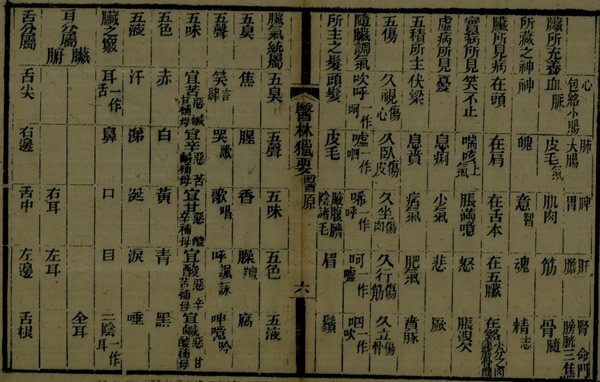 心包絡小腸 肺大腸 胃 肝膽 腎命門膀胱三焦
臟所充養 血脈 皮毛氣 肌肉 筋 骨髓
所藏之神 神 魄 意智 魂 精志
臟所見病 在頭 在肩 在舌本 在五臟
實病所見 笑不止 喘咳上氣 脹滿噫 怒
虛病所見 憂 息痢 少氣 悲 厥
五積所主 伏梁 息賁 痞氣 肥氣 賁豚
五傷 久視傷心 久臥傷皮 久坐傷肉 久行傷筋 久立傷骨
隨臟調氣 吹呼一作呵 噓一作呬 唏一作呼 呵一作噓 呬一作吹
所主之髮 頭髮 皮毛 腋腹臍陰諸毛 眉 鬚
醫林獵要 醫原 六
臟氣統屬 五臭 五聲 五味 五色 五液
五臭 焦 腥 香 臊羶 腐
五聲 笑言 哭 歌唱 呼諷詠 呻噫吟
五味 宜苦惡鹹甘補母 宜辛惡苦鹹補母 宜甘惡酸辛補母 宜酸惡辛苦補母 宜鹹惡甘酸補母
五色 赤 白 黃 青 黑
五液 汗 涕 涎 淚 唾
臟之竅 耳一作舌 鼻 口 目 二陰一作耳
耳分屬臟腑 右耳 左耳 全耳
舌分屬 舌尖 右邊 舌中 左邊 舌根